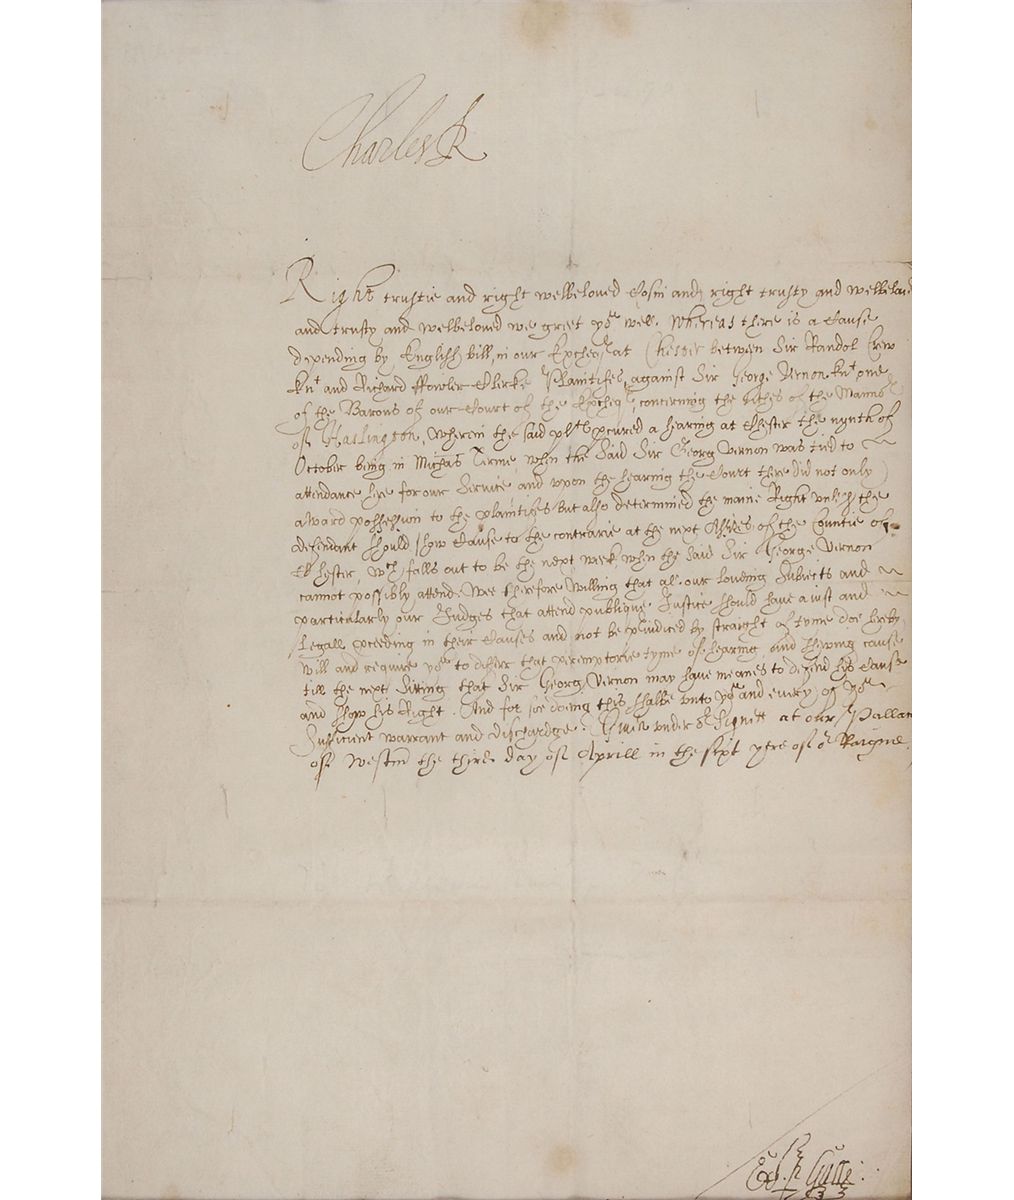 Charles R
Right trustie and right welbeloved Cosin and right trusty and welbeloved
and trusty and welbeloved we greet yoᵘ well. Whereas there is a Cause
depending by English bill, in our Excheqʳ at Chester between Sir Randol Crew
Knᵗ and Richard ffowler Clerke Plaintifes, against Sir George Vernon Knᵗ one
of the Barons of our Court of the Excheqʳ, concerning the tithes of the Mannoʳ
of Haslington, wherein the said pltˢ pcured a hearing at Chester the nynth of
October being in Michas Terme, when the said Sir Georg Vernon was tied to
attendance here for our Service, and upon the hearing the Court there did not only
award possession to the plaintifes but also determined the maine Right unless the
defendant should show Cause to the contrarie at the next Assises of the Countie of
Chester, wᶜʰ falls out to be the next week, when the said Sir George Vernon
cannot possibly attend. Wee therefore willing that al our loving Subjects and
particularly our Judges that attend publique Justice should have a just and
Legall pceeding in their Causes and not be pjudiced by straight of tyme doe hereby
will and require yoᵘ to deferr that peremptorie tyme of hearing, and shewing cause
till the next Sitting that Sir Georg Vernon may have meanes to defend his Cause
and show his Right. And for soe doing this shalbe unto yoᵘ and every of yoᵘ
sufficient warrant and dischardge. Given under oʳ Signett at our Pallace
of Westm̃ the third day of Aprill in the sixt yere of oʳ Raigne.